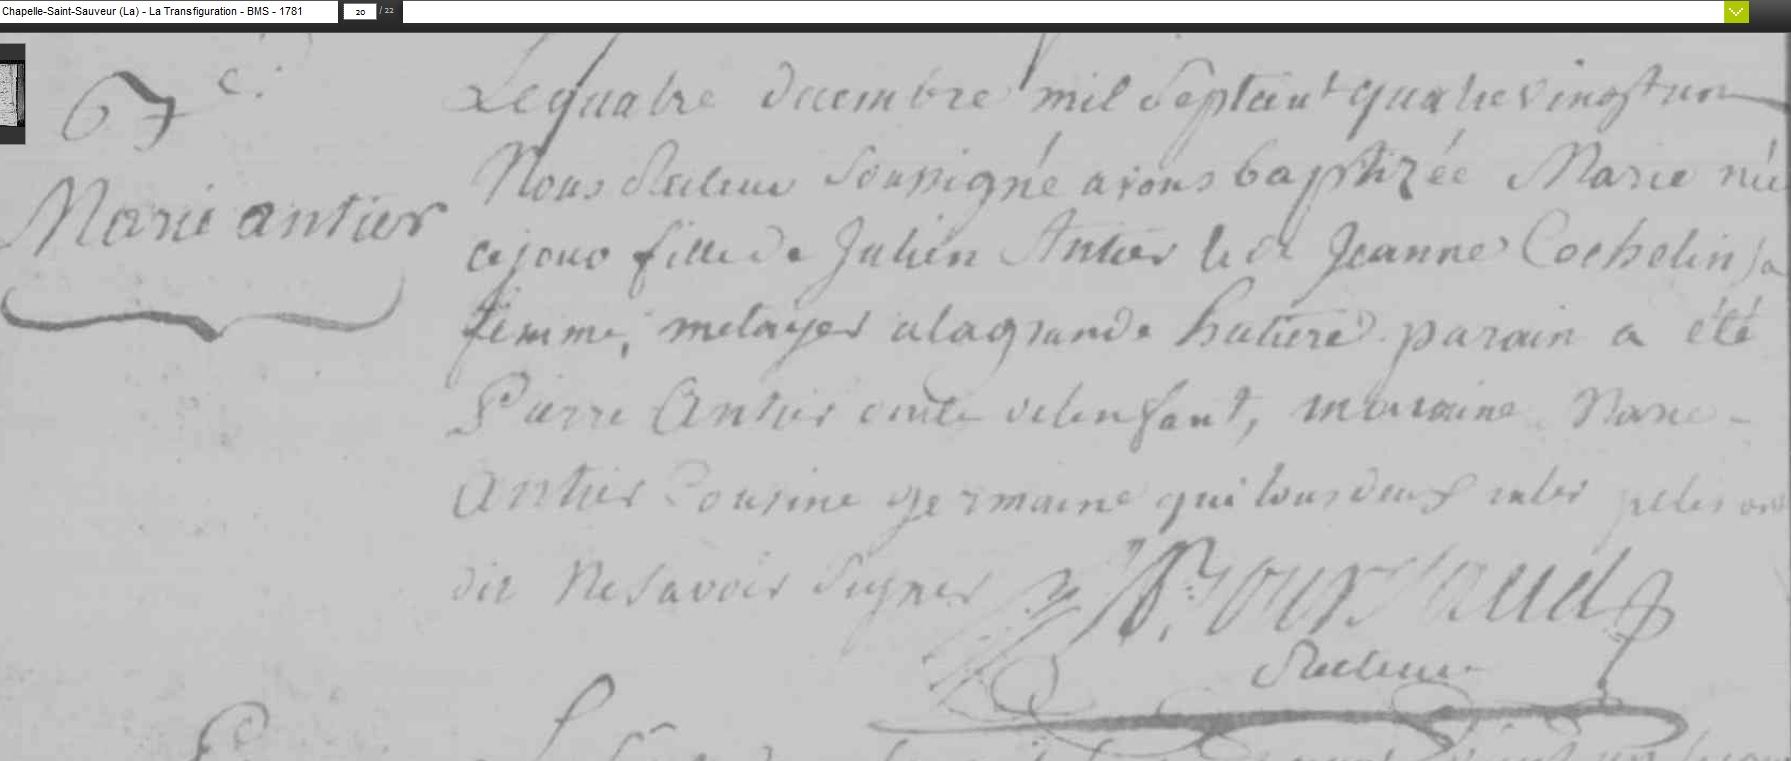 Chapelle-Saint-Sauveur (La) - La Transfiguration - BMS - 1781 20 / 22
67e.
Marie antier
Le quatre decembre mil Septcent quatrevingtun
Nous Recteur Soussigné avons baptizée Marie née
ce jour fille de Julien Antier et de Jeanne Cochelin sa
femme, metayer a la grande hutiere. parain a été
Pierre Antier oncle de lenfant, maraine Marie
Antier Cousine germaine qui tous deux interpelés ont
dit Ne Savoir Signer
Recteur